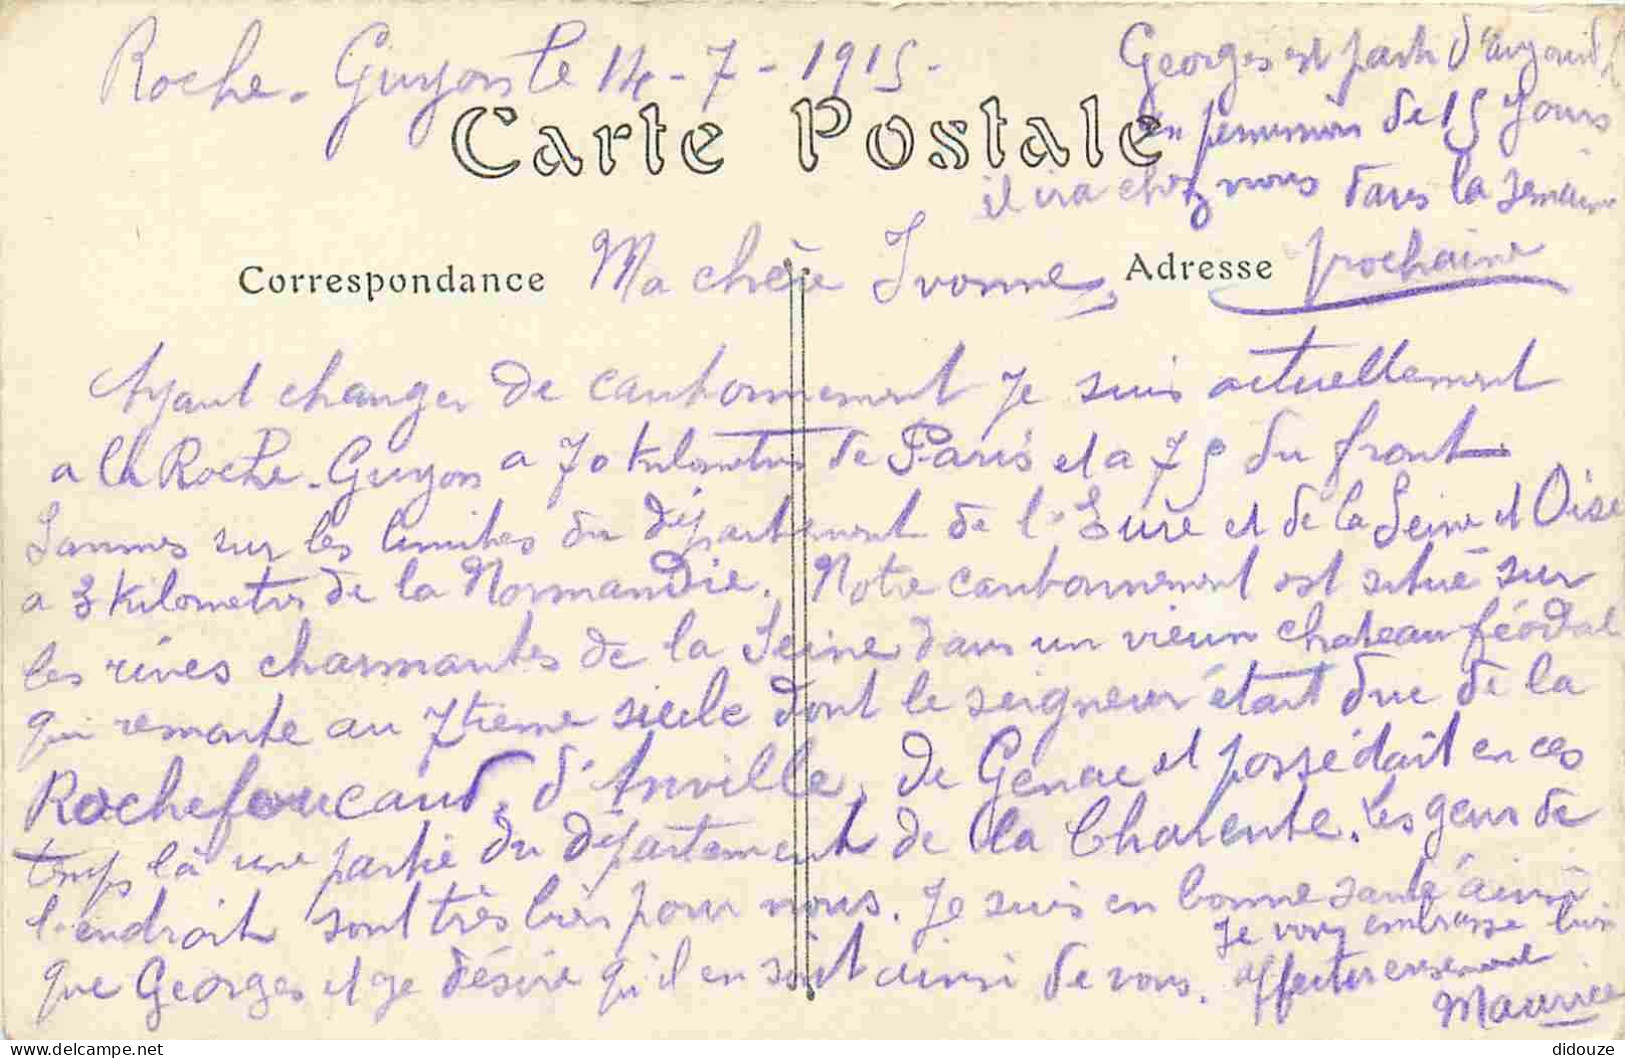 Roche-Guyon le 14-7-1915-
Georges est parti d'
en permission de 15 Jours
il ira chez nous dans la semaine
prochaine
Carte Postale
Correspondance
Adresse
Ma chère Yvonne,
Ayant changer de cantonnement je suis actuellement
a la Roche-Guyon a 70 kilometres de Paris et a 75 du front
Sommes sur les limites du département de l'Eure et de la Seine et Oise
a 3 kilometres de la Normandie. Notre cantonnement est situé sur
les rives charmantes de la Seine dans un vieux chateau féodal
qui remonte au 7tième siècle dont le seigneur était duc de la
Rochefoucaud, d'Anville, de Genac et possédait en ces
temps là une partie du département de la Charente. Les gens de
l'endroit sont très bien pour nous. Je suis en bonne santé ainsi
que Georges et je désire qu'il en soit ainsi de vous.
Je vous embrasse bien
affectueusement
Maurice
didouze